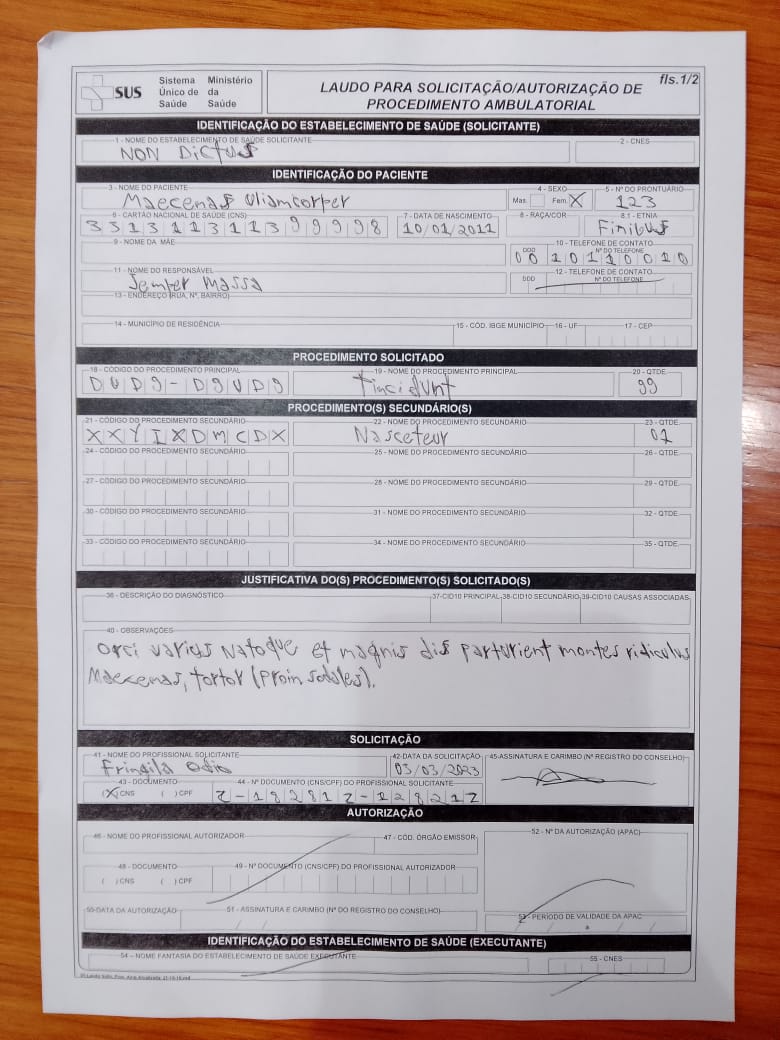 SUS Sistema Único de Saúde Ministério da Saúde
LAUDO PARA SOLICITAÇÃO/AUTORIZAÇÃO DE PROCEDIMENTO AMBULATORIAL
fls.1/2
IDENTIFICAÇÃO DO ESTABELECIMENTO DE SAÚDE (SOLICITANTE)
1 - NOME DO ESTABELECIMENTO DE SAÚDE SOLICITANTE 2 - CNES
NON Dictus
IDENTIFICAÇÃO DO PACIENTE
3 - NOME DO PACIENTE 4 - SEXO 5 - Nº DO PRONTUÁRIO
Maecenas Uliamcorper Mas. Fem. X 123
6 - CARTÃO NACIONAL DE SAÚDE (CNS) 7 - DATA DE NASCIMENTO 8 - RAÇA/COR 8.1 - ETNIA
331311311399998 10/01/2011 Finibus
9 - NOME DA MÃE 10 - TELEFONE DE CONTATO
DDD Nº DO TELEFONE
00 10110010
11 - NOME DO RESPONSÁVEL 12 - TELEFONE DE CONTATO
Semper Massa DDD Nº DO TELEFONE
13 - ENDEREÇO (RUA, Nº, BAIRRO)
14 - MUNICÍPIO DE RESIDÊNCIA 15 - CÓD. IBGE MUNICÍPIO 16 - UF 17 - CEP
PROCEDIMENTO SOLICITADO
18 - CÓDIGO DO PROCEDIMENTO PRINCIPAL 19 - NOME DO PROCEDIMENTO PRINCIPAL 20 - QTDE.
Tincidunt 99
PROCEDIMENTO(S) SECUNDÁRIO(S)
21 - CÓDIGO DO PROCEDIMENTO SECUNDÁRIO 22 - NOME DO PROCEDIMENTO SECUNDÁRIO 23 - QTDE.
XXYIXDMCDX Nasceteur 01
24 - CÓDIGO DO PROCEDIMENTO SECUNDÁRIO 25 - NOME DO PROCEDIMENTO SECUNDÁRIO 26 - QTDE.
27 - CÓDIGO DO PROCEDIMENTO SECUNDÁRIO 28 - NOME DO PROCEDIMENTO SECUNDÁRIO 29 - QTDE.
30 - CÓDIGO DO PROCEDIMENTO SECUNDÁRIO 31 - NOME DO PROCEDIMENTO SECUNDÁRIO 32 - QTDE.
33 - CÓDIGO DO PROCEDIMENTO SECUNDÁRIO 34 - NOME DO PROCEDIMENTO SECUNDÁRIO 35 - QTDE.
JUSTIFICATIVA DO(S) PROCEDIMENTO(S) SOLICITADO(S)
36 - DESCRIÇÃO DO DIAGNÓSTICO 37-CID10 PRINCIPAL 38-CID10 SECUNDÁRIO 39-CID10 CAUSAS ASSOCIADAS
40 - OBSERVAÇÕES
Orci varius Natoque et magnis dis parturient montes ridiculus
Maecenas, tortor (Proin sodales).
SOLICITAÇÃO
41 - NOME DO PROFISSIONAL SOLICITANTE 42-DATA DA SOLICITAÇÃO 45-ASSINATURA E CARIMBO (Nº REGISTRO DO CONSELHO)
Fringila Odio 03/03/2023
43 - DOCUMENTO 44 - Nº DOCUMENTO (CNS/CPF) DO PROFISSIONAL SOLICITANTE
(X) CNS ( ) CPF
AUTORIZAÇÃO
46 - NOME DO PROFISSIONAL AUTORIZADOR 47 - CÓD. ÓRGÃO EMISSOR 52 - Nº DA AUTORIZAÇÃO (APAC)
48 - DOCUMENTO 49 - Nº DOCUMENTO (CNS/CPF) DO PROFISSIONAL AUTORIZADOR
( ) CNS ( ) CPF
50-DATA DA AUTORIZAÇÃO 51 - ASSINATURA E CARIMBO (Nº DO REGISTRO DO CONSELHO) 53 - PERÍODO DE VALIDADE DA APAC
/ / / / a / /
IDENTIFICAÇÃO DO ESTABELECIMENTO DE SAÚDE (EXECUTANTE)
54 - NOME FANTASIA DO ESTABELECIMENTO DE SAÚDE EXECUTANTE 55 - CNES